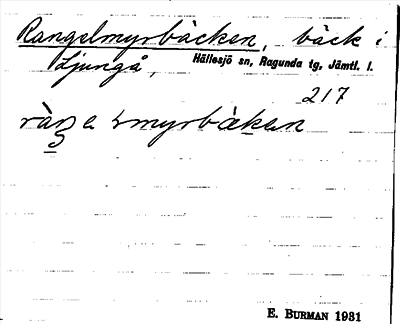 Rangelmyrbäcken, bäck i
Ljungå, Hällesjö sn, Ragunda tg, Jämtl. l.
217
E. BURMAN 1931